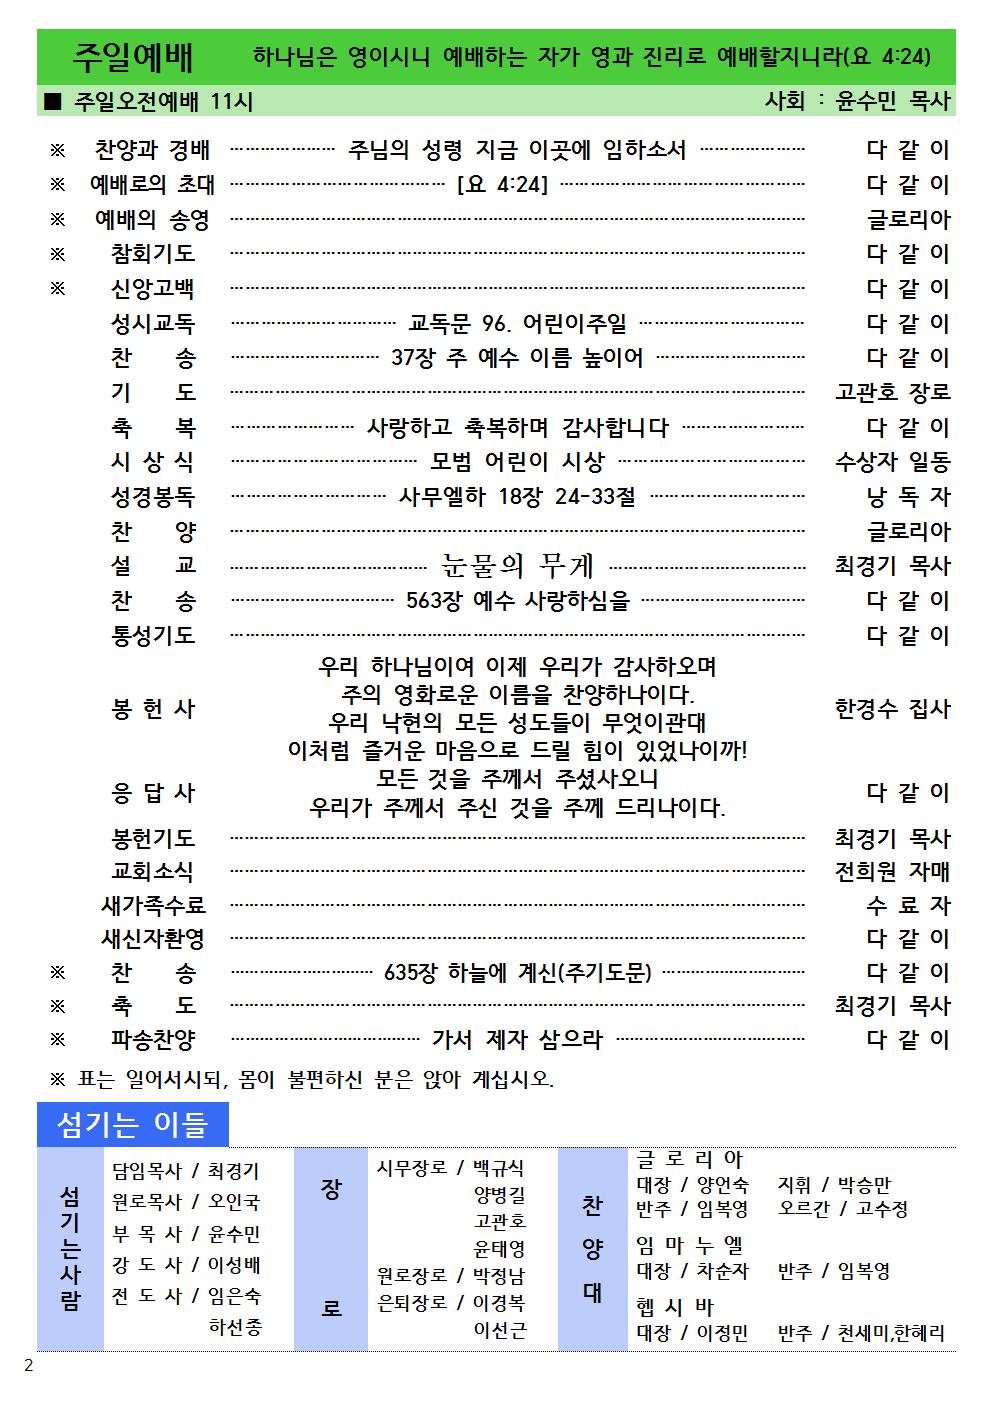 주일예배 하나님은 영이시니 예배하는 자가 영과 진리로 예배할지니라(요 4:24)
■ 주일오전예배 11시 사회 : 윤수민 목사
※ 찬양과 경배 ………………… 주님의 성령 지금 이곳에 임하소서 ………………… 다 같 이
※ 예배로의 초대 ………………… [요 4:24] ………………… 다 같 이
※ 예배의 송영 ………………… 글로리아
※ 참회기도 ………………… 다 같 이
※ 신앙고백 ………………… 다 같 이
성시교독 ………………… 교독문 96. 어린이주일 ………………… 다 같 이
찬 송 ………………… 37장 주 예수 이름 높이어 ………………… 다 같 이
기 도 ………………… 고관호 장로
축 복 ………………… 사랑하고 축복하며 감사합니다 ………………… 다 같 이
시 상 식 ………………… 모범 어린이 시상 ………………… 수상자 일동
성경봉독 ………………… 사무엘하 18장 24-33절 ………………… 낭 독 자
찬 양 ………………… 글로리아
설 교 ………………… 눈물의 무게 ………………… 최경기 목사
찬 송 ………………… 563장 예수 사랑하심을 ………………… 다 같 이
통성기도 ………………… 다 같 이
우리 하나님이여 이제 우리가 감사하오며
주의 영화로운 이름을 찬양하나이다.
봉 헌 사 한경수 집사
우리 낙현의 모든 성도들이 무엇이관대
이처럼 즐거운 마음으로 드릴 힘이 있었나이까!
모든 것을 주께서 주셨사오니
응 답 사 다 같 이
우리가 주께서 주신 것을 주께 드리나이다.
봉헌기도 ………………… 최경기 목사
교회소식 ………………… 전희원 자매
새가족수료 ………………… 수 료 자
새신자환영 ………………… 다 같 이
※ 찬 송 ………………… 635장 하늘에 계신(주기도문) ………………… 다 같 이
※ 축 도 ………………… 최경기 목사
※ 파송찬양 ………………… 가서 제자 삼으라 ………………… 다 같 이
※ 표는 일어서시되, 몸이 불편하신 분은 앉아 계십시오.
섬기는 이들
섬기는사람
담임목사 / 최경기
원로목사 / 오인국
부 목 사 / 윤수민
강 도 사 / 이성배
전 도 사 / 임은숙
하선종
장 로
시무장로 / 백규식
양병길
고관호
윤태영
원로장로 / 박정남
은퇴장로 / 이경복
이선근
찬 양 대
글 로 리 아
대장 / 양언숙 지휘 / 박승만
반주 / 임복영 오르간 / 고수정
임 마 누 엘
대장 / 차순자 반주 / 임복영
헵 시 바
대장 / 이정민 반주 / 천세미,한혜리
2